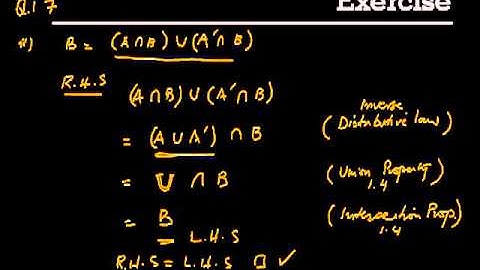 Exercise
Q.1 7
ii) B = (A∩B) ∪ (A′∩B)
R.H.S (A∩B) ∪ (A′∩B)
= (A ∪ A′) ∩ B (Inverse Distributive law)
= U ∩ B (Union Property 1.4)
= B (Intersection Prop. 1.4)
= L.H.S
R.H.S = L.H.S □ ✓